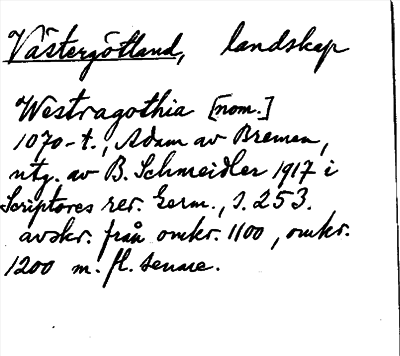 Västergötland, landskap
Westragothia [nom.]
1070-t., Adam av Bremen,
utg. av B. Schmeidler 1917 i
Scriptores rer. Germ., s. 253.
avskr. från omkr. 1100, omkr.
1200 m. fl. senare.